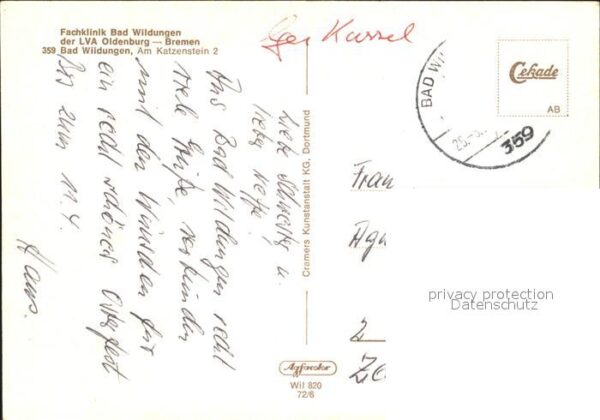 Fachklinik Bad Wildungen
der LVA Oldenburg — Bremen
359 Bad Wildungen, Am Katzenstein 2
Kassel
Liebe Schwester u.
lieber Neffe!
Aus Bad Wildungen recht
viele Grüße, verbunden
mit den Wünschen für
ein recht schönes Osterfest
Bis zum 11.4.
Hans.
Cramers Kunstanstalt KG, Dortmund
Agfacolor
Wil 820
72/6
BAD WI
359
Cekade
AB
Frau
Agn
privacy protection
Datenschutz